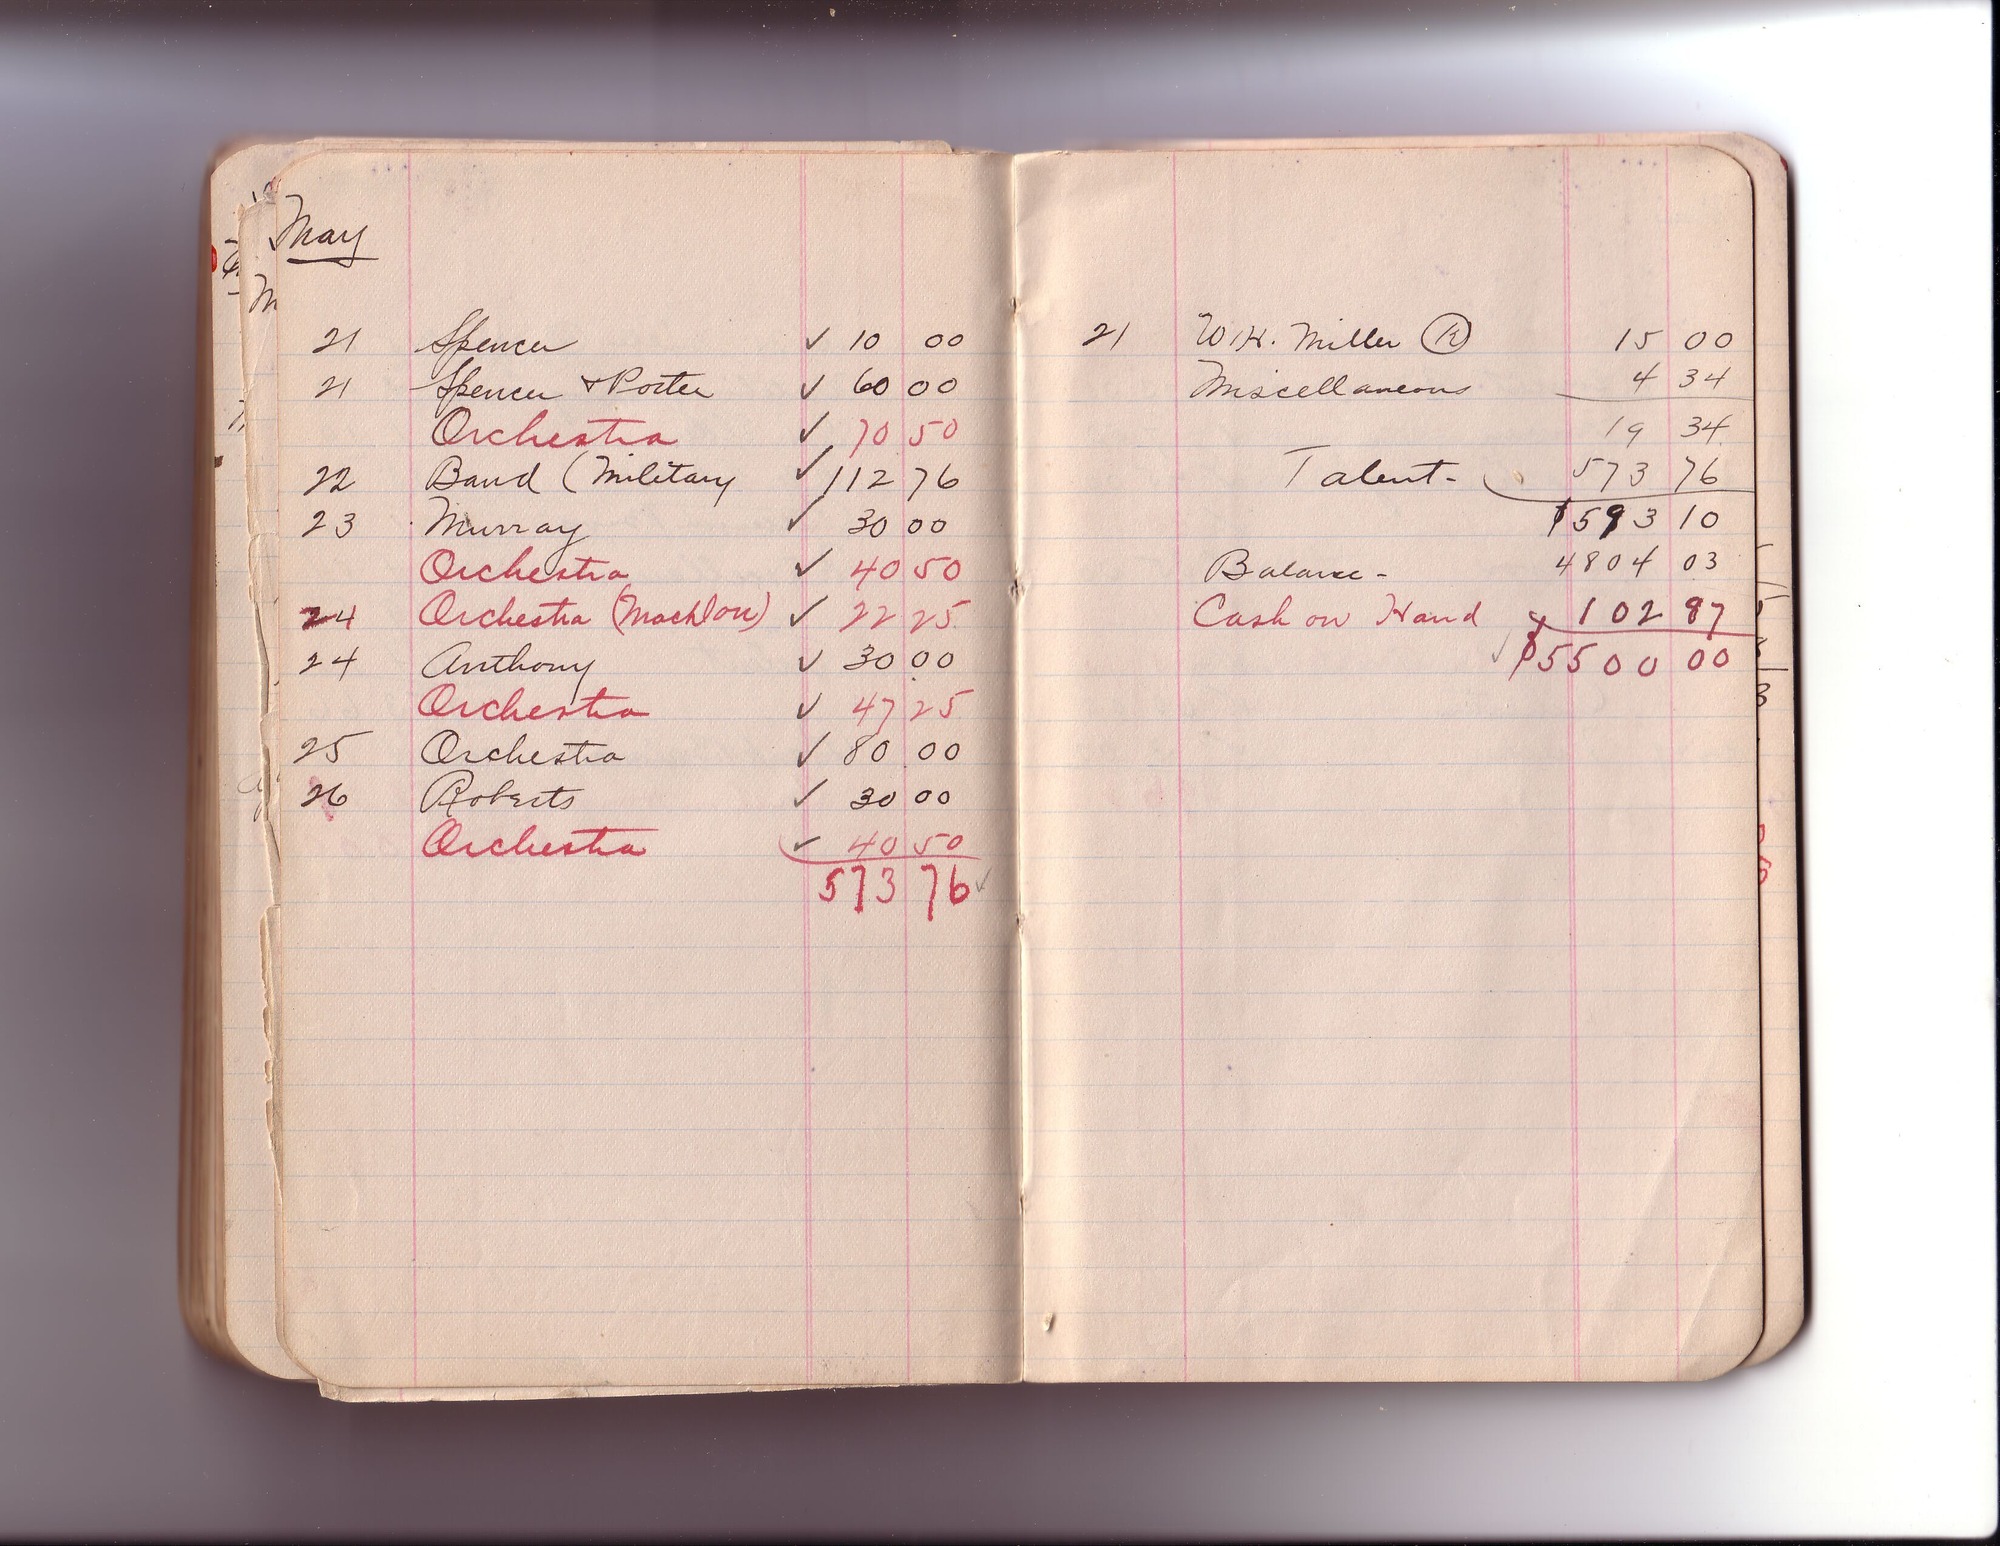 May
21 Spencer ✓ 10 00
21 Spencer + Porter ✓ 60 00
Orchestra ✓ 70 50
22 Band (Military ✓ 112 76
23 Murray ✓ 30 00
Orchestra ✓ 40 50
24 Orchestra ✓ 22 25
24 Anthony ✓ 30 00
Orchestra ✓ 47 25
25 Orchestra ✓ 80 00
26 Roberts ✓ 30 00
Orchestra ✓ 40 50
573 76 ✓
21 W.H. Miller (R) 15 00
Miscellaneous 4 34
19 34
Talent - 573 76
$593 10
Balance - 4804 03
Cash on Hand 102 87
✓ $5500 00